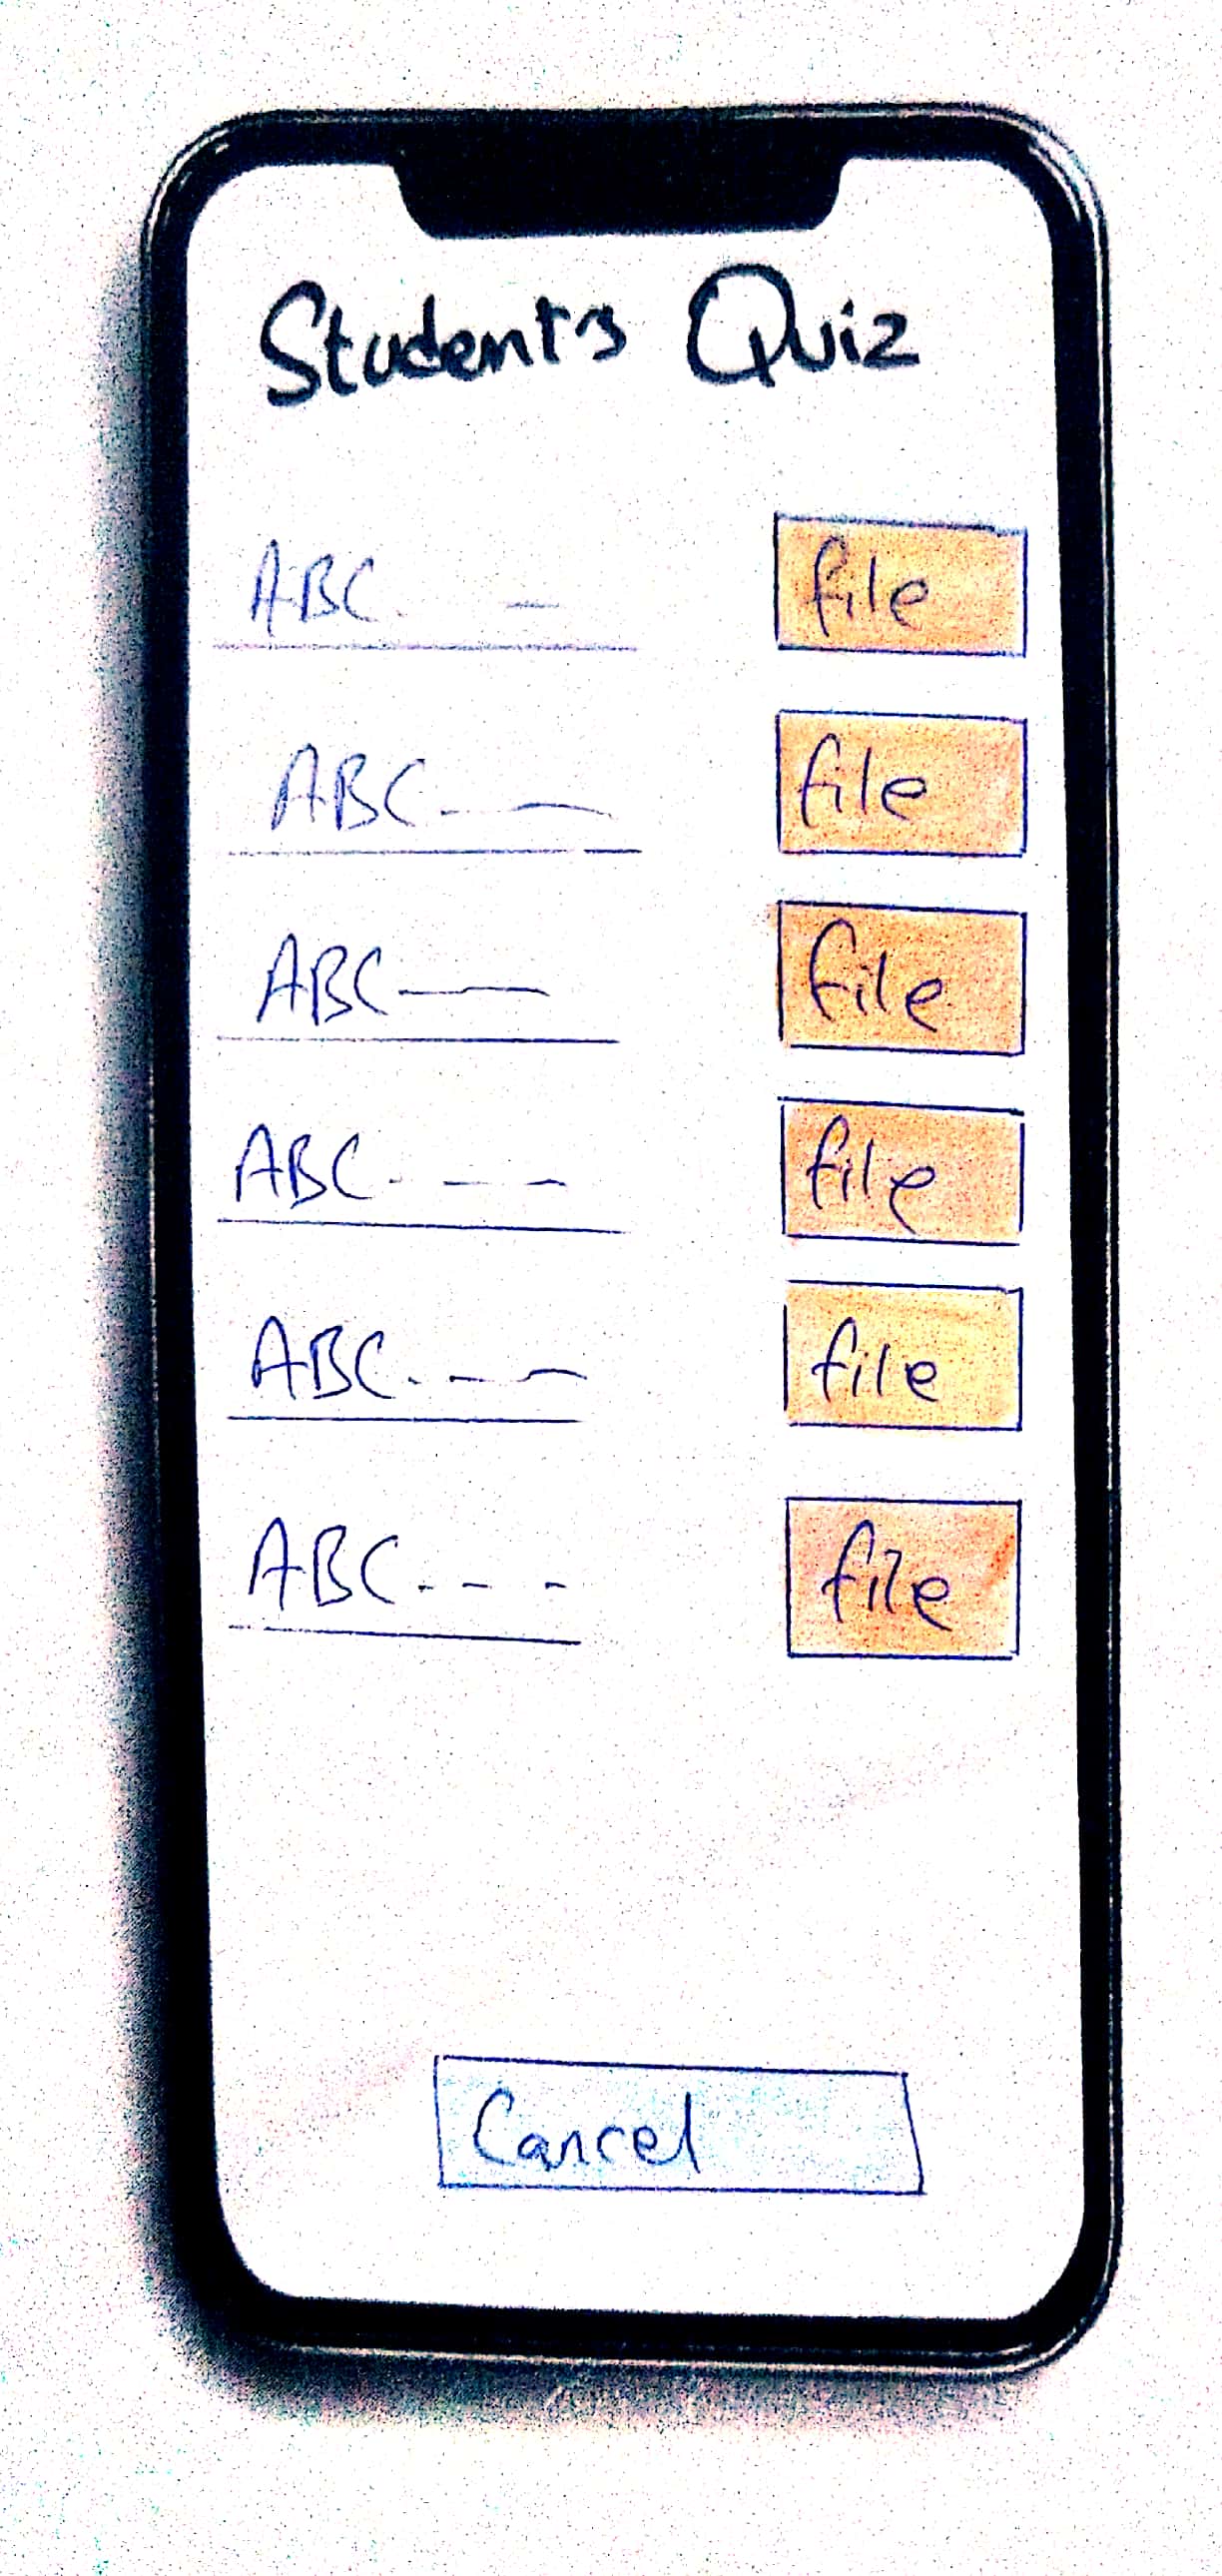 Student's Quiz
ABC. - file
ABC - - file
ABC — file
ABC - - - file
ABC. - - file
ABC - - - file
Cancel